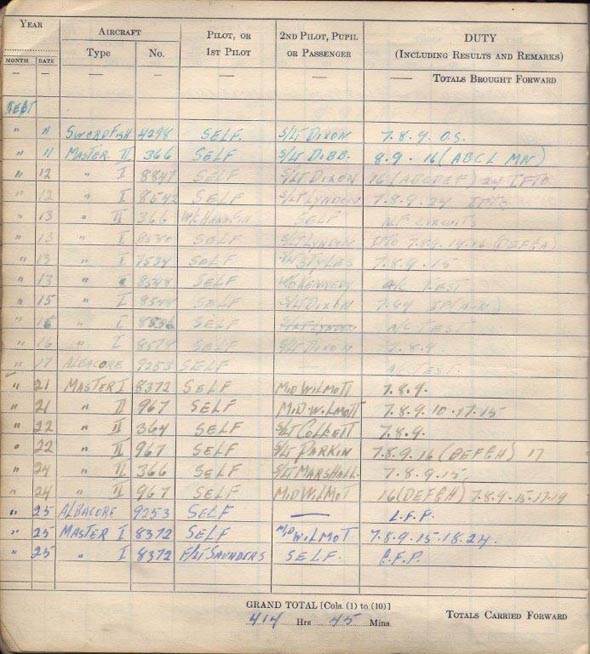 YEAR AIRCRAFT PILOT, OR 2ND PILOT, PUPIL DUTY
MONTH DATE Type No. 1ST PILOT OR PASSENGER (INCLUDING RESULTS AND REMARKS)
— — — — — — — TOTALS BROUGHT FORWARD
SEPT
" 11 SWORDFISH 4298 SELF S/LT DIXON 7.8.9. O.S.
" 11 MASTER II 366 SELF S/LT DIBB. 8.9.16 (ABCL MN)
" 12 " I 8841 SELF S/LT DIXON 16 (ABCDEF) 24
" 12 " I SELF S/LT LYNDON 7.8.9.24
" 13 " II 366 SELF CIRCUITS
" 13 " I SELF S/LT LYNDON
" 13 " I SELF STYLES 7.8.9.15
" 13 " I SELF KENNEDY A/C TEST
" 15 " I SELF S/LT DIXON
" 16 " I SELF A/C TEST
" 16 " I SELF S/LT DIXON 7.8.9.
" 17 ALBACORE 9253 SELF A/C TEST.
" 21 MASTER I 8372 SELF MID WILMOTT 7.8.9.
" 21 " II 967 SELF MID WILMOTT 7.8.9.10.17.15
" 22 " II 364 SELF S/LT COLLETT 7.8.9.
" 22 " II 967 SELF S/LT PARKIN 7.8.9.16 (DEFGH) 17
" 24 " II 366 SELF S/LT MARSHALL. 7.8.9.15.
" 24 " II 967 SELF MID WILMOT 16 (DEFGH) 7.8.9.15.17.19
" 25 ALBACORE 9253 SELF —
" 25 MASTER I 8372 SELF MID WILMOT 7.8.9.15.18.24.
" 25 " I 8372 F/LT SAUNDERS SELF.
GRAND TOTAL [Cols. (1) to (10)]
414 Hrs 45 Mins. TOTALS CARRIED FORWARD